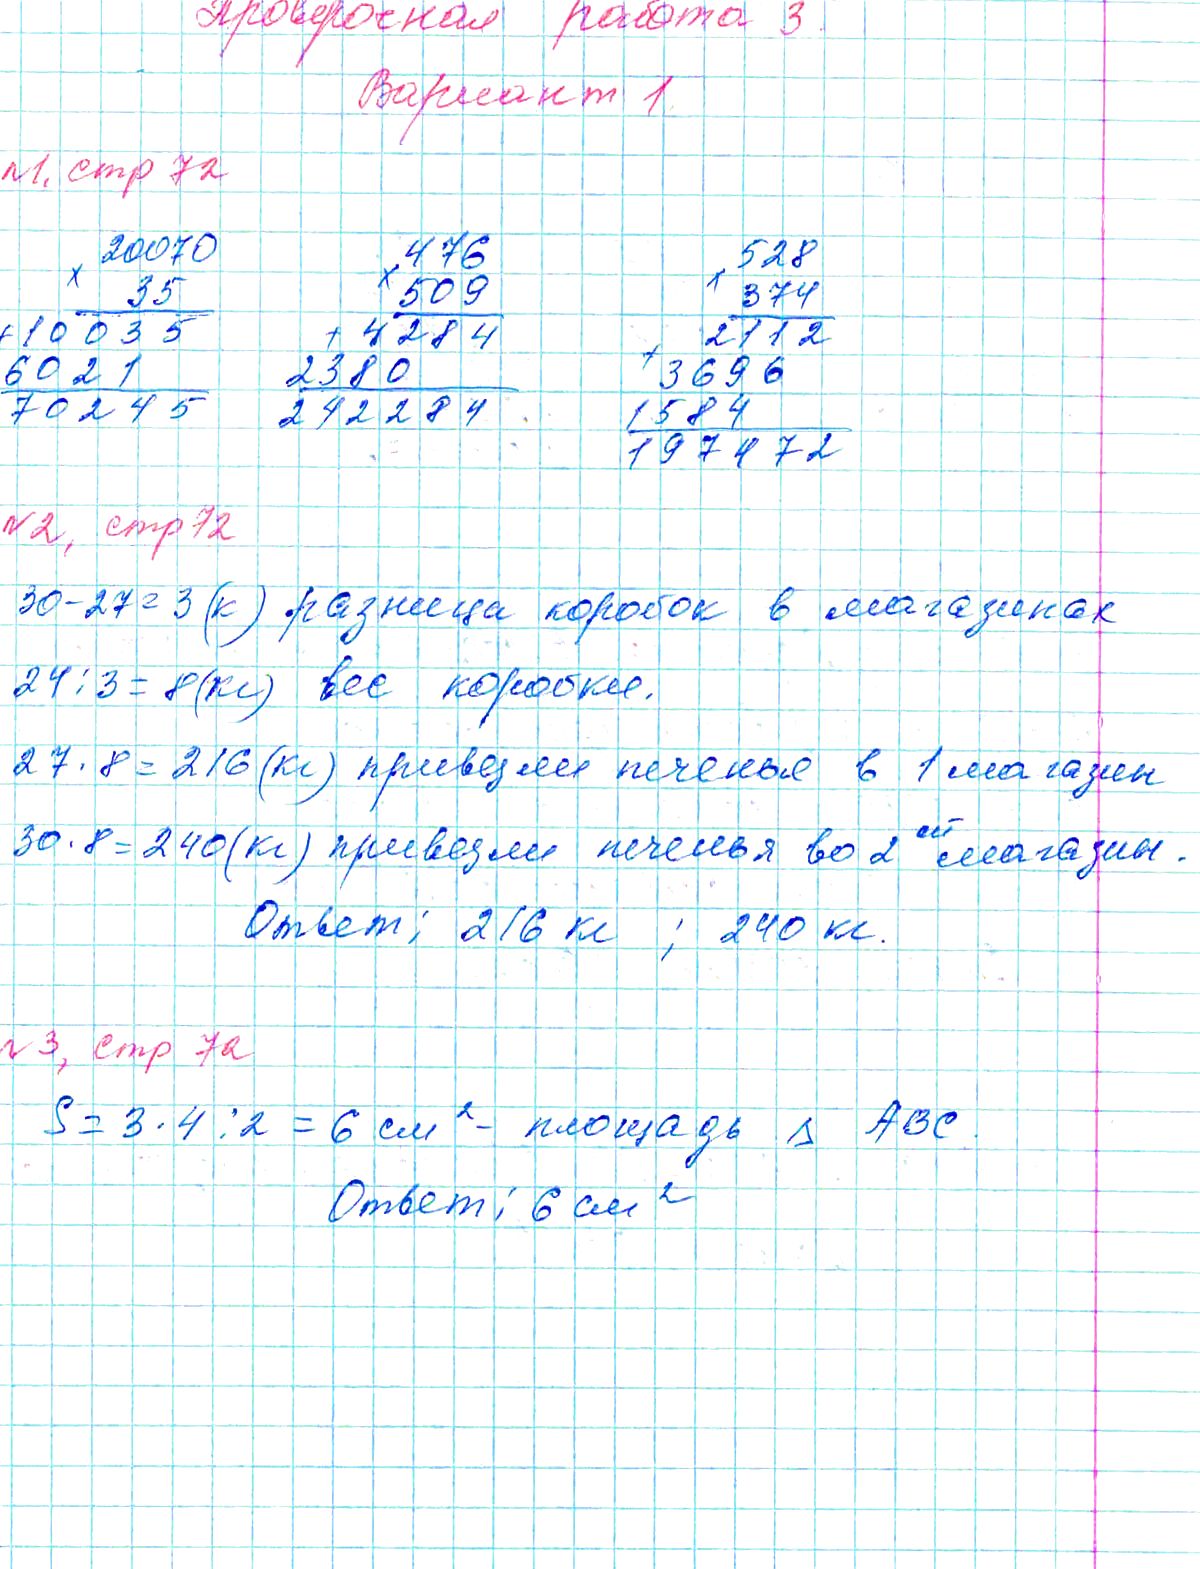 Проверочная работа 3.
Вариант 1
№1, стр 72
20070 476 528
х 35 х 509 х 374
+10035 +4284 2112
6021 2380 +3696
70245 242284 1584
197472
№2, стр 72
30-27=3(к) разница коробок в магазинах
24:3=8(кг) вес коробки.
27·8=216(кг) привезли печенье в 1 магазин
30·8=240(кг) привезли печенья во 2ой магазин.
Ответ: 216 кг ; 240 кг.
№3, стр 72
S=3·4:2=6 см²- площадь Δ АВС.
Ответ: 6 см²